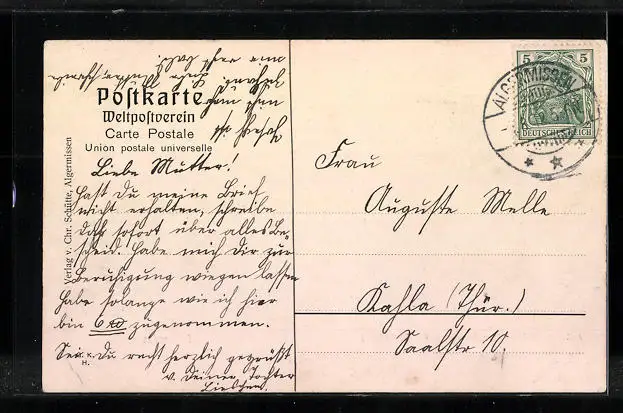 Postkarte
Weltpostverein
Carte Postale
Union postale universelle
Verlag v. Chr. Schütte, Algermissen
Liebe Mutter!
Hast Du meine Brief
nicht erhalten, schreibe
doch sofort über alles Be-
scheid. Habe mich Dir zur
Beruhigung wiegen lassen
habe solange wie ich hier
bin 6 zugenommen.
Sei Du recht herzlich gegrüßt
v. Deiner Tochter
Lieschen.
K. K.
H.
5 5
DEUTSCHES REICH
ALGERMISSEN
Frau
Auguste Melle
Kahla (Thür.)
Saalstr 10.